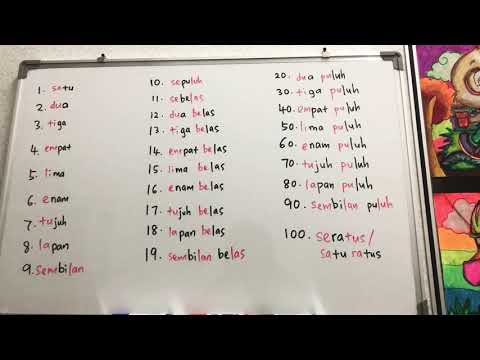 1. satu
2. dua
3. tiga
4. empat
5. lima
6. enam
7. tujuh
8. lapan
9. sembilan
10. sepuluh
11. sebelas
12. dua belas
13. tiga belas
14. empat belas
15. lima belas
16. enam belas
17. tujuh belas
18. lapan belas
19. sembilan belas
20. dua puluh
30. tiga puluh
40. empat puluh
50. lima puluh
60. enam puluh
70. tujuh puluh
80. lapan puluh
90. sembilan puluh
100. seratus/
satu ratus